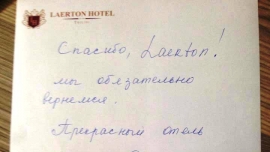 LAERTON HOTEL
Спасибо, Laerton!
мы обязательно
вернемся.
Прекрасный отель